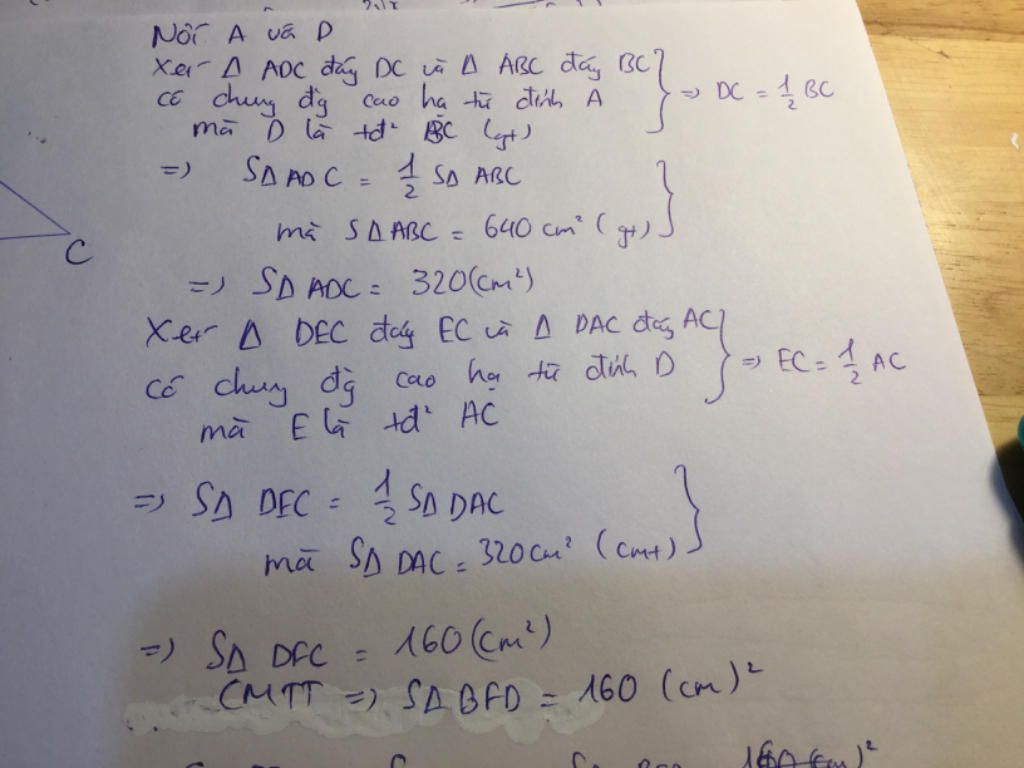 Nối A và D
Xét Δ ADC đáy DC và Δ ABC đáy BC
có chung đg cao hạ từ đỉnh A
mà D là tđ² BC (gt)
=> DC = 1/2 BC
=> SΔ ADC = 1/2 SΔ ABC
mà SΔABC = 640 cm² (gt)
=> SΔ ADC = 320(cm²)
C
Xét Δ DEC đáy EC và Δ DAC đáy AC
có chung đg cao hạ từ đỉnh D
mà E là tđ² AC
=> EC = 1/2 AC
=> SΔ DEC = 1/2 SΔ DAC
mà SΔ DAC = 320cm² (cmt)
=> SΔ DEC = 160(cm²)
CMTT => SΔ BFD = 160 (cm)²